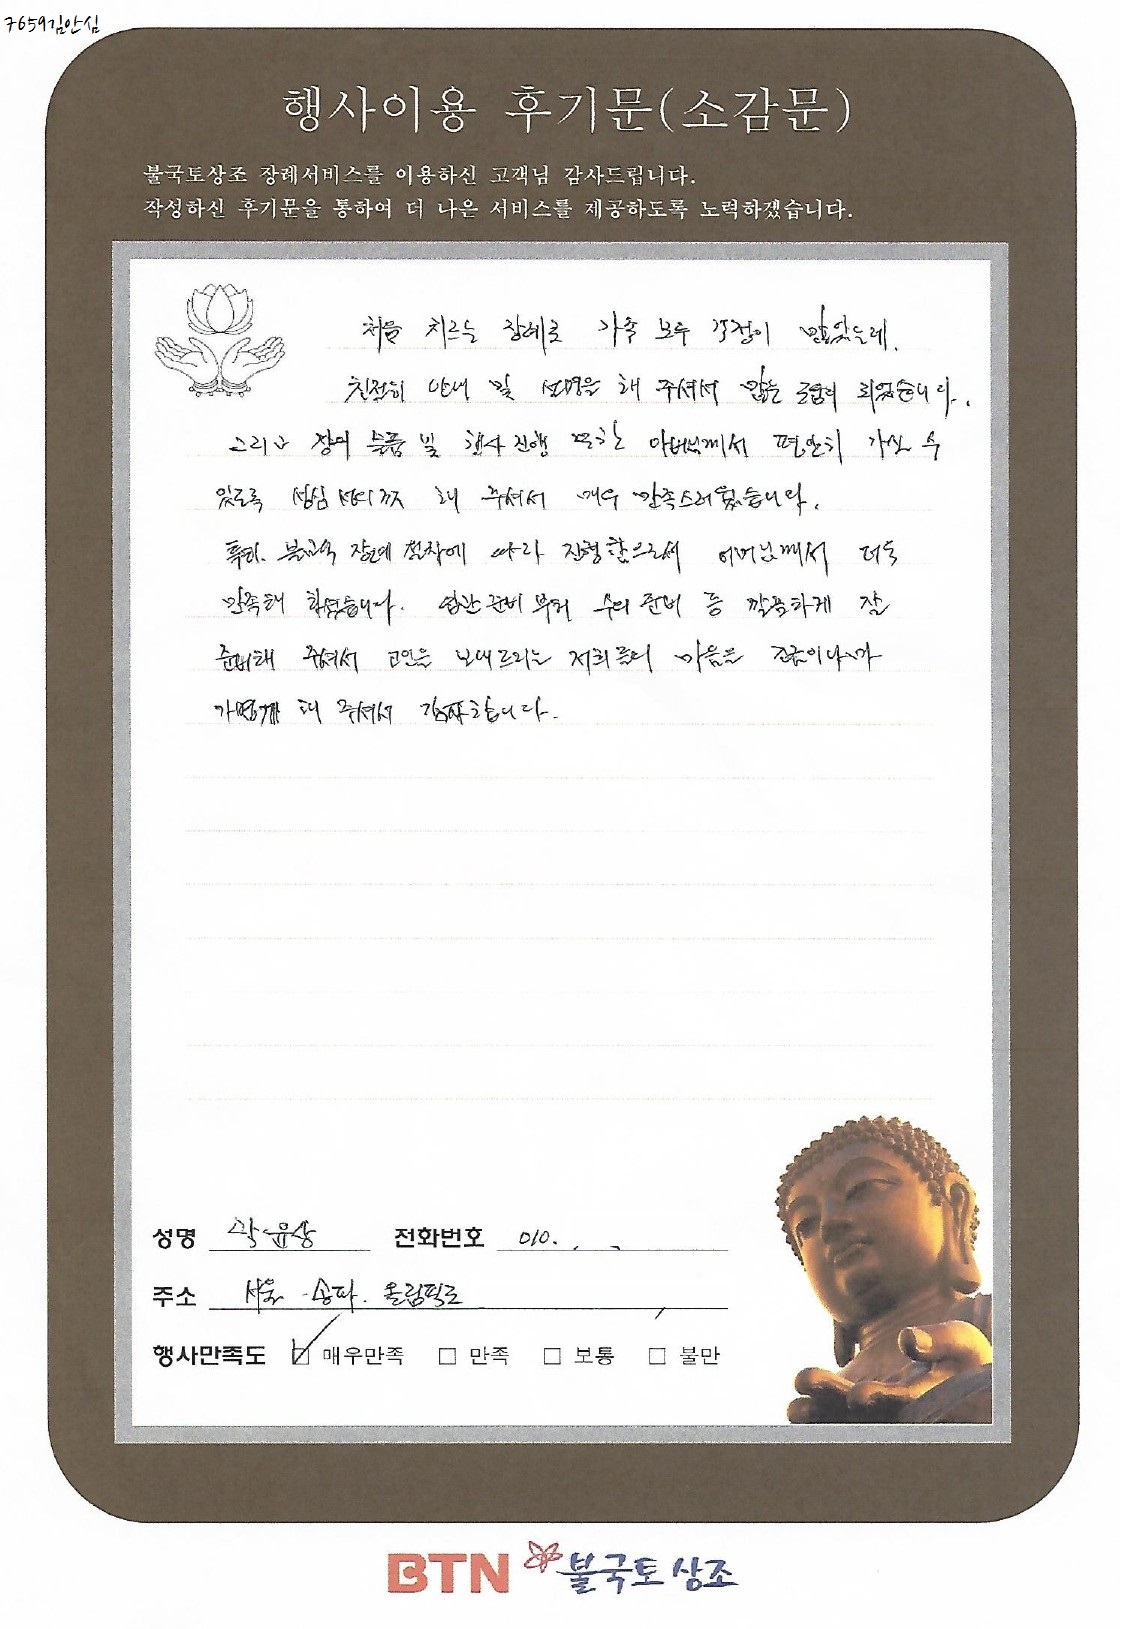 7659김안심
행사이용 후기문(소감문)
불국토상조 장례서비스를 이용하신 고객님 감사드립니다.
작성하신 후기문을 통하여 더 나은 서비스를 제공하도록 노력하겠습니다.
처음 치르는 장례로 가족 모두 걱정이 많았는데,
친절히 안내 및 설명을 해 주셔서 많은 도움이 되었습니다.
그리고 장례 용품 및 행사 진행 또한 아버님께서 편안히 가실 수
있도록 성심 성의껏 해 주셔서 매우 만족스러웠습니다.
특히, 불교식 장례 절차에 따라 진행함으로서 어머님께서 더욱
만족해 하셨습니다. 입관 준비부터 수의 준비 등 깔끔하게 잘
준비해 주셔서 고인을 보내드리는 저희들의 마음을 조금이나마
가볍게 해 주셔서 감사합니다.
성명 전화번호 010.
주소 서울 송파 올림픽로
행사만족도 ☑ 매우만족 □ 만족 □ 보통 □ 불만
BTN 불국토상조